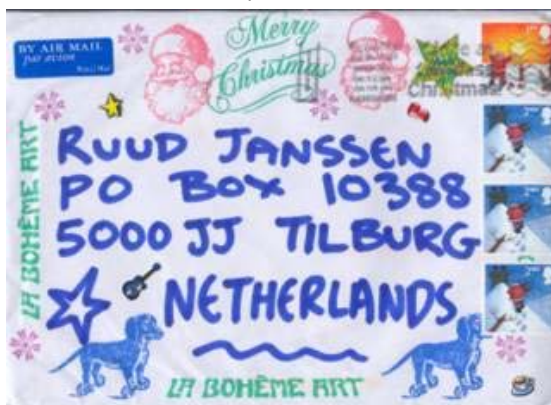 BY AIR MAIL
PAR AVION
Royal Mail
Merry
Christmas
Christmas
LA BOHÈME ART
RUUD JANSSEN
PO BOX 10388
5000 JJ TILBURG
NETHERLANDS
LA BOHÈME ART